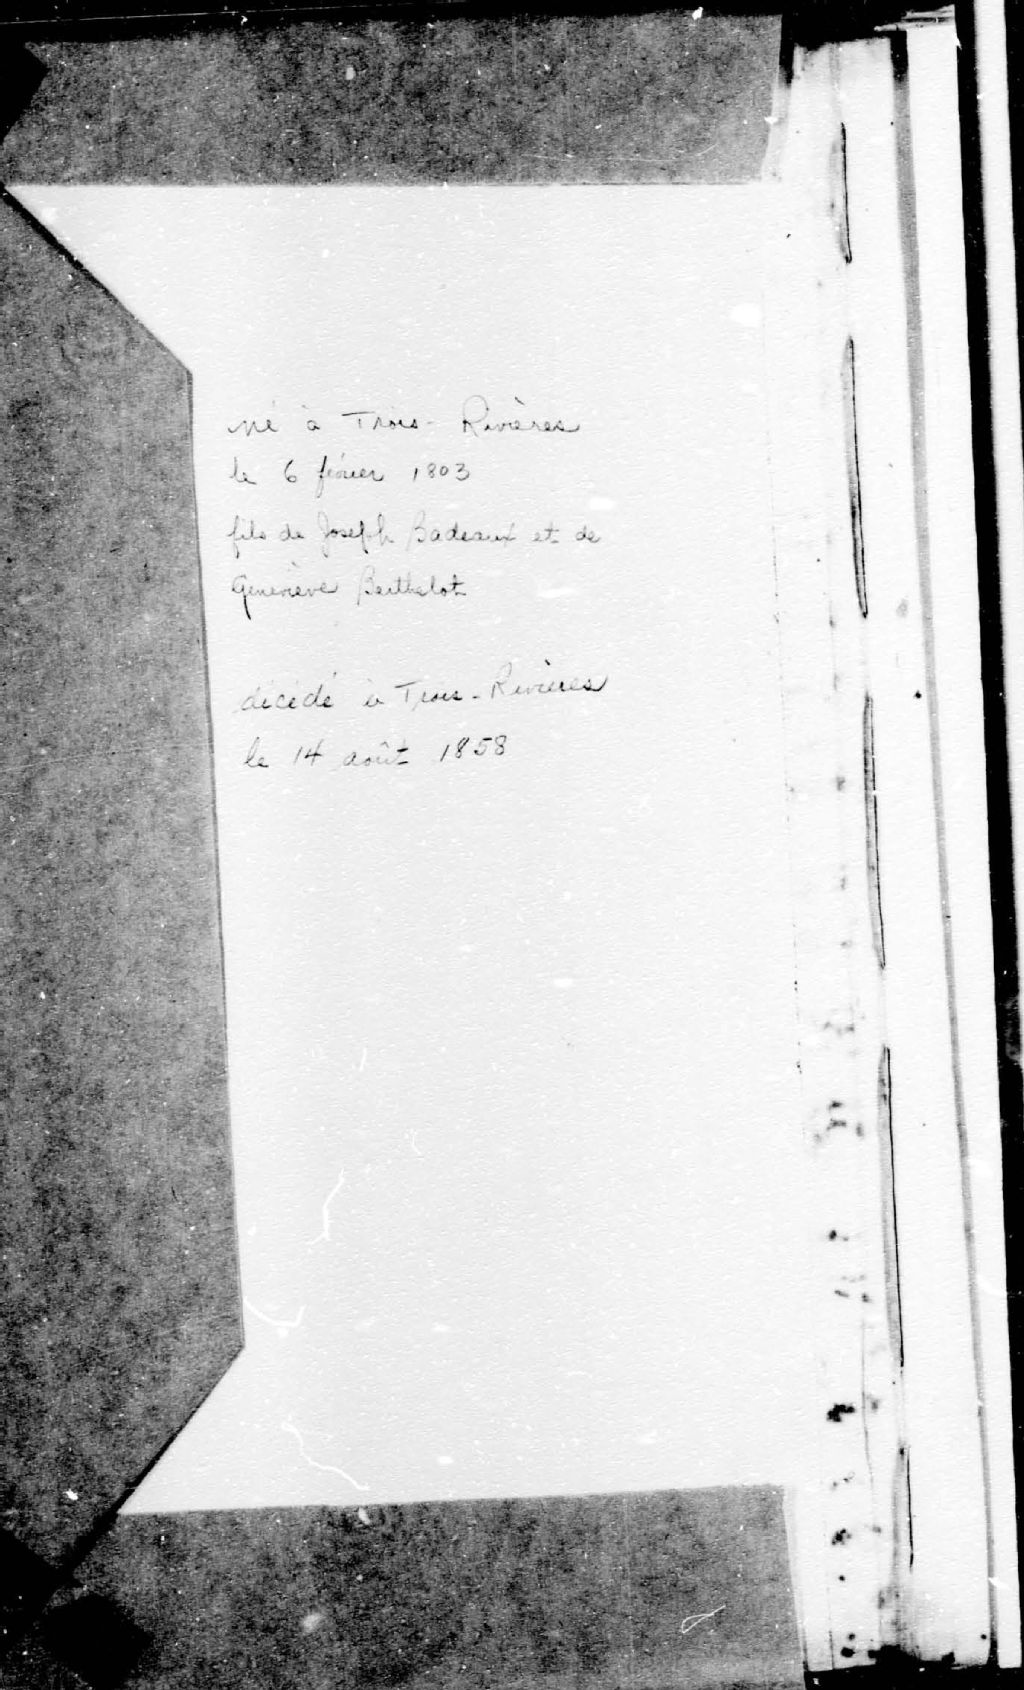 né à Trois-Rivières
le 6 février 1803
fils de Joseph Badeaux et de
Geneviève Berthelot
décédé à Trois-Rivières
le 14 août 1858